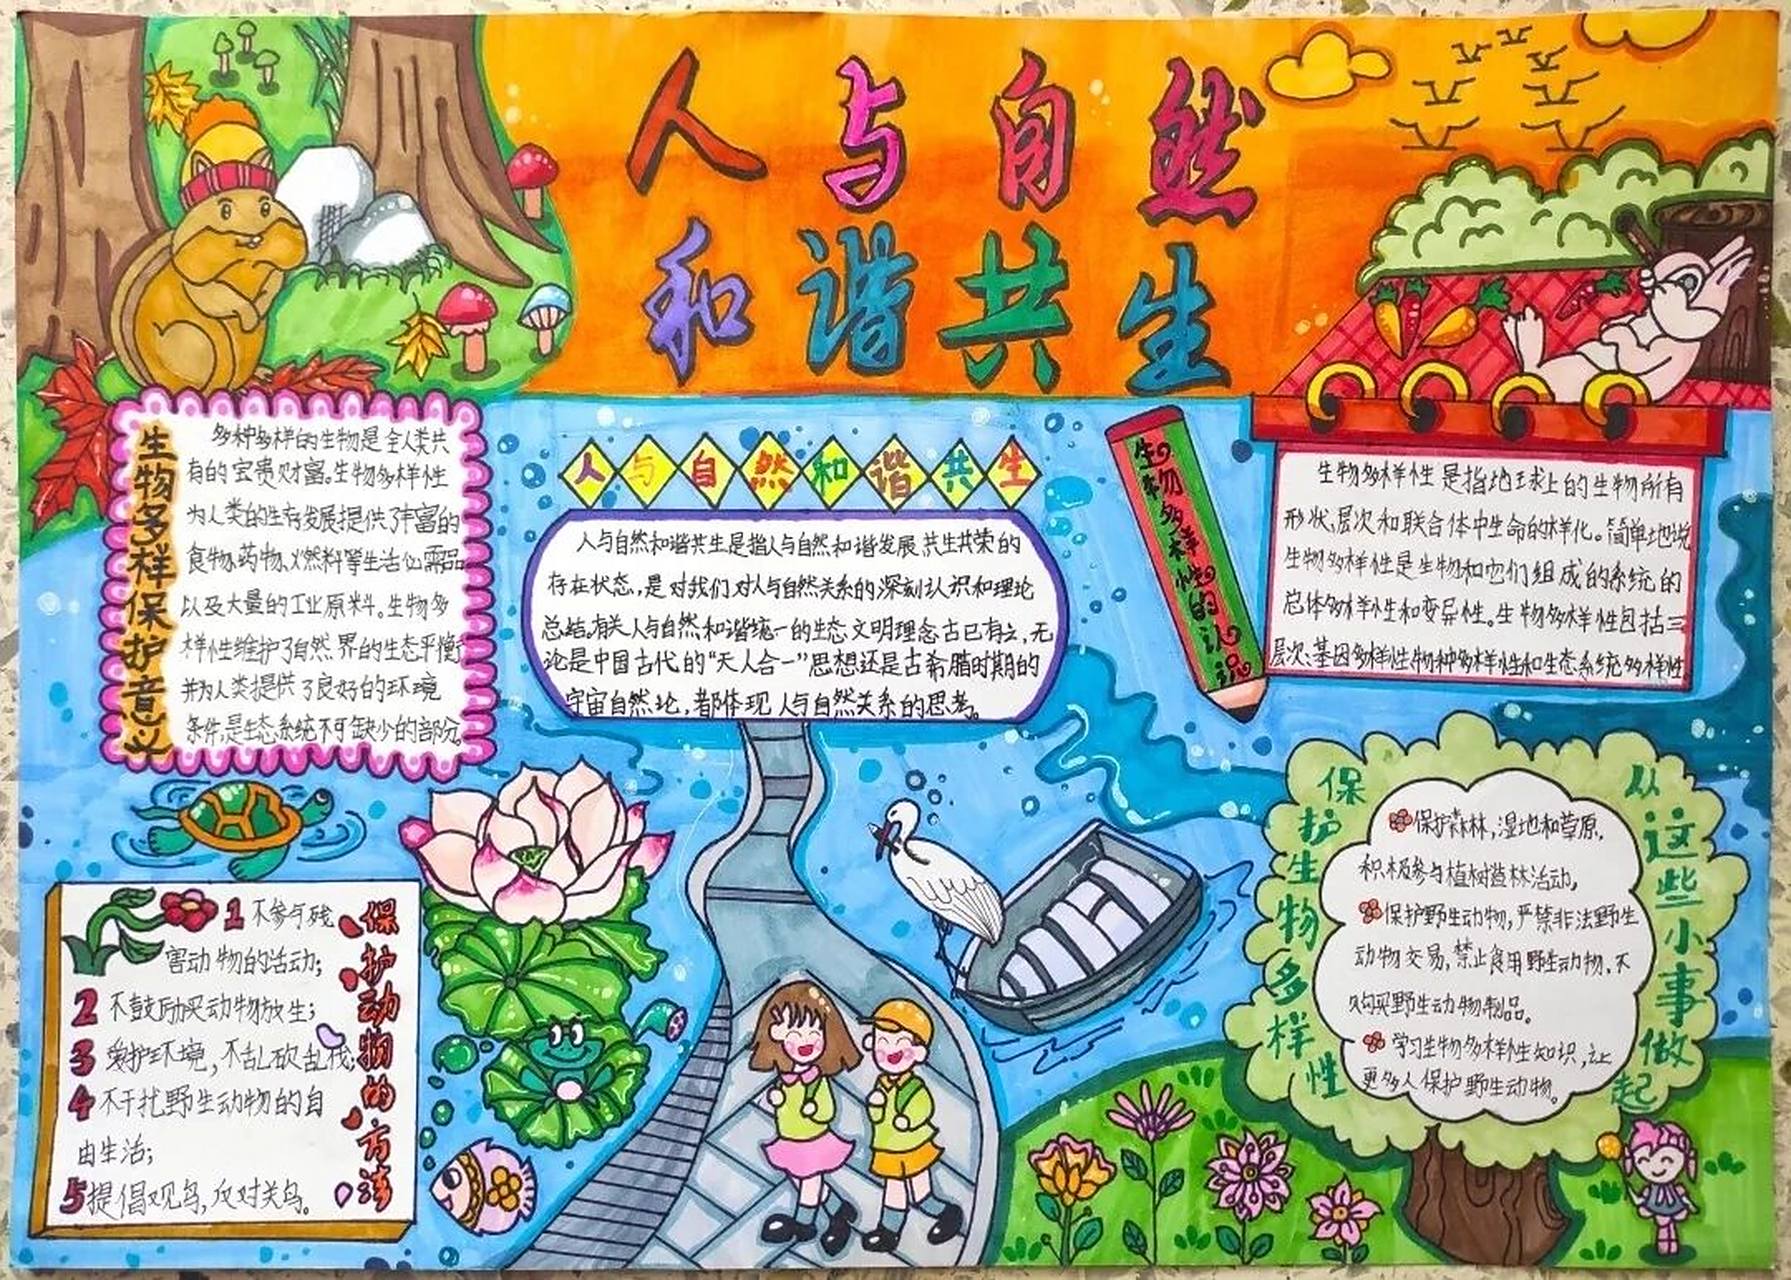 人与自然
和谐共生
生物多样保护意义
多种多样的生物是全人类共
有的宝贵财富。生物多样性
为人类的生存发展提供了丰富的
食物、药物、燃料等生活必需品
以及大量的工业原料。生物多
样性维护了自然界的生态平衡
并为人类提供了良好的环境
条件,是生态系统不可缺少的部分。
人与自然和谐共生
人与自然和谐共生是指人与自然和谐发展共生共荣的
存在状态,是对我们对人与自然关系的深刻认识和理论
总结。有关人与自然和谐统一的生态文明理念古已有之,无
论是中国古代的“天人合一”思想还是古希腊时期的
宇宙自然论,都体现人与自然关系的思考。
生物多样性的认识
生物多样性是指地球上的生物所有
形状、层次和联合体中生命的样化。简单地说
生物多样性是生物和它们组成的系统的
总体多样性和变异性。生物多样性包括三
层次:基因多样性物种多样性和生态系统多样性
保护动物的方法
1不参与残
害动物的活动;
2不鼓励买动物放生;
3爱护环境,不乱砍乱伐
4不干扰野生动物的自
由生活;
5提倡观鸟,反对关鸟。
保护生物多样性
从这些小事做起
保护森林,湿地和草原,
积极参与植树造林活动,
保护野生动物,严禁非法野生
动物交易,禁止食用野生动物,不
购买野生动物制品。
学习生物多样性知识,让
更多人保护野生动物。